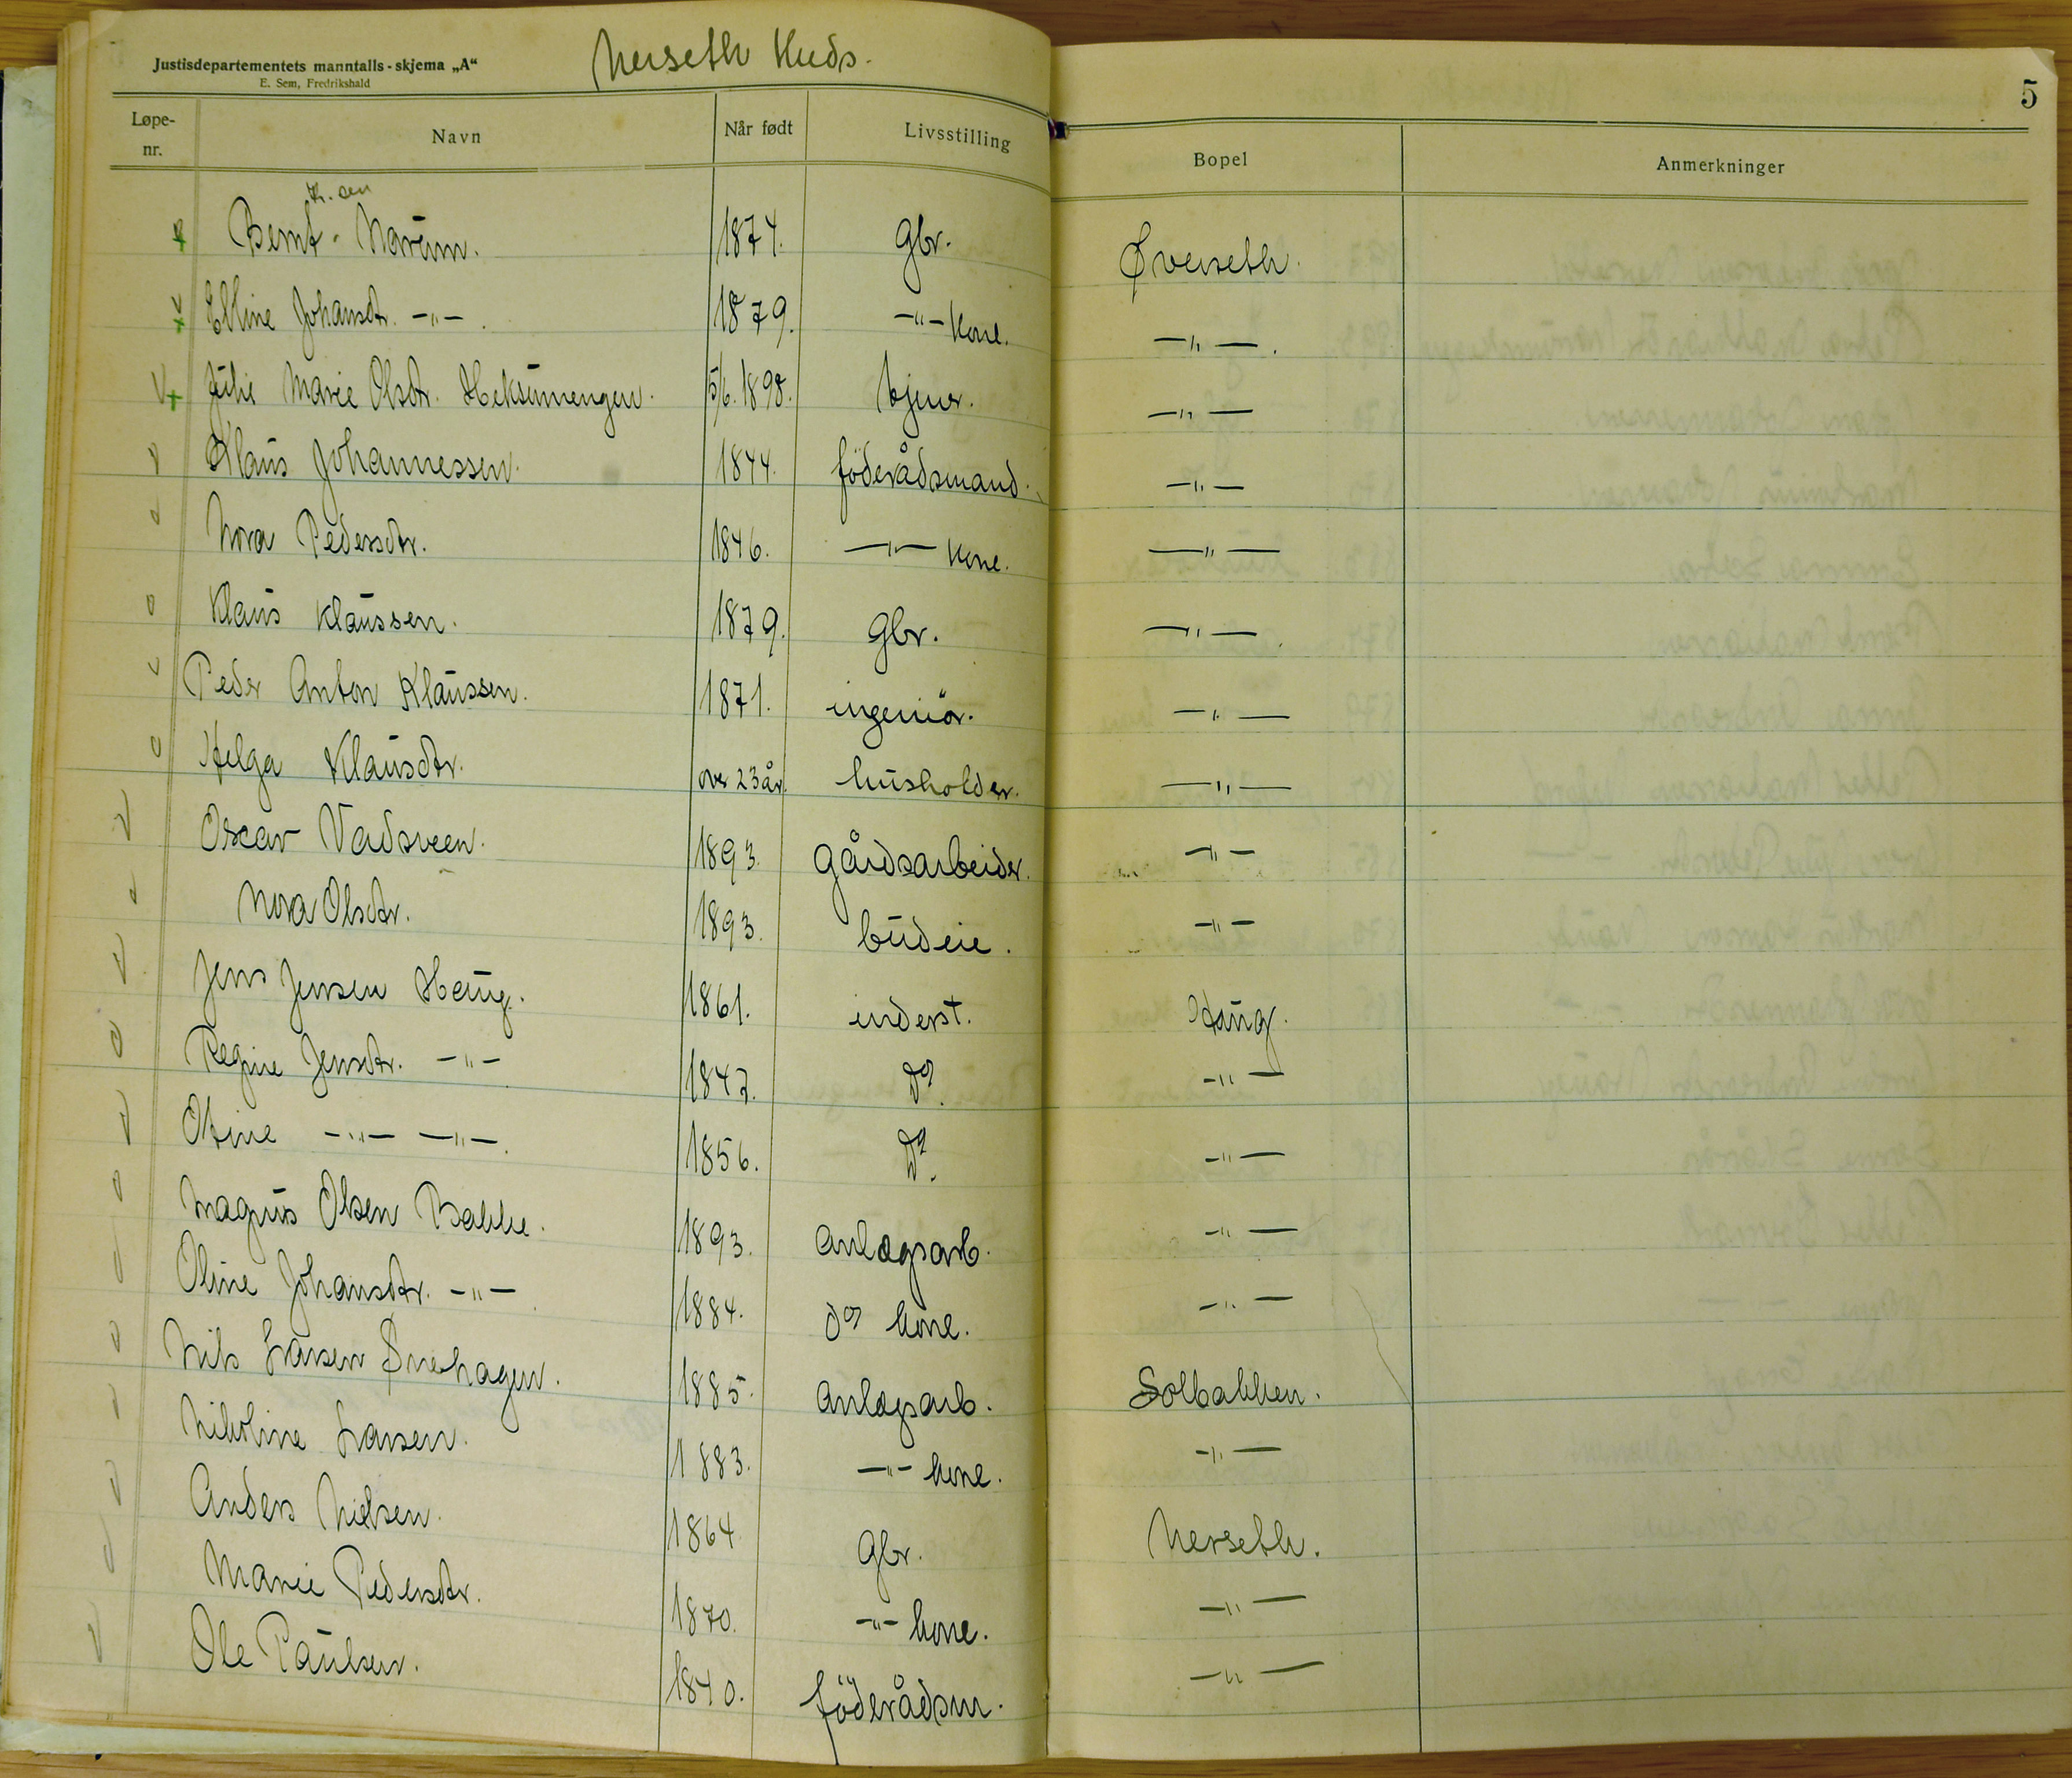 Justisdepartementets manntalls-skjema „A“
E. Sem, Fredrikshald
Nerseth Kreds.
5
Løpe-nr. Navn Når født Livsstilling Bopel Anmerkninger
Kr. sen
Bernt Norum. 1874. Gbr. Øverseth.
Elline Johansdtr. -"- 1879. -"- Kone. -"-
Julie Marie Olsdtr. Heksumengen. 5/6. 1898. tjener. -"-
Klaus Johannessen. 1844. föderådsmand. -"-
Nora Pedersdtr. 1846. -"- Kone. -"-
Klaus Klaussen. 1879. Gbr. -"-
Peder Anton Klaussen. 1871. ingeniör. -"-
Helga Klausdtr. over 23 år. husholder. -"-
Oscar Vadsveen. 1893. Gårdsarbeider. -"-
Nora Olsdtr. 1893. budeie. -"-
Jens Jensen Haug. 1861. inderst. Haug.
Regine Jensdtr. -"- 1847. Do. -"-
Otine -"- -"- 1856. Do. -"-
Magnus Olsen Bakke. 1893. Anlægsarb. -"-
Oline Johansdtr. -"- 1884. do kone. -"-
Nils Larsen Ønehagen. 1885. Anlægsarb. Solbakken.
Nikoline Larsen. 1883. -"- kone. -"-
Anders Nielsen. 1864. Gbr. Nerseth.
Marie Pedersdtr. 1870. -"- kone. -"-
Ole Paulsen. 1840. föderådsm. -"-